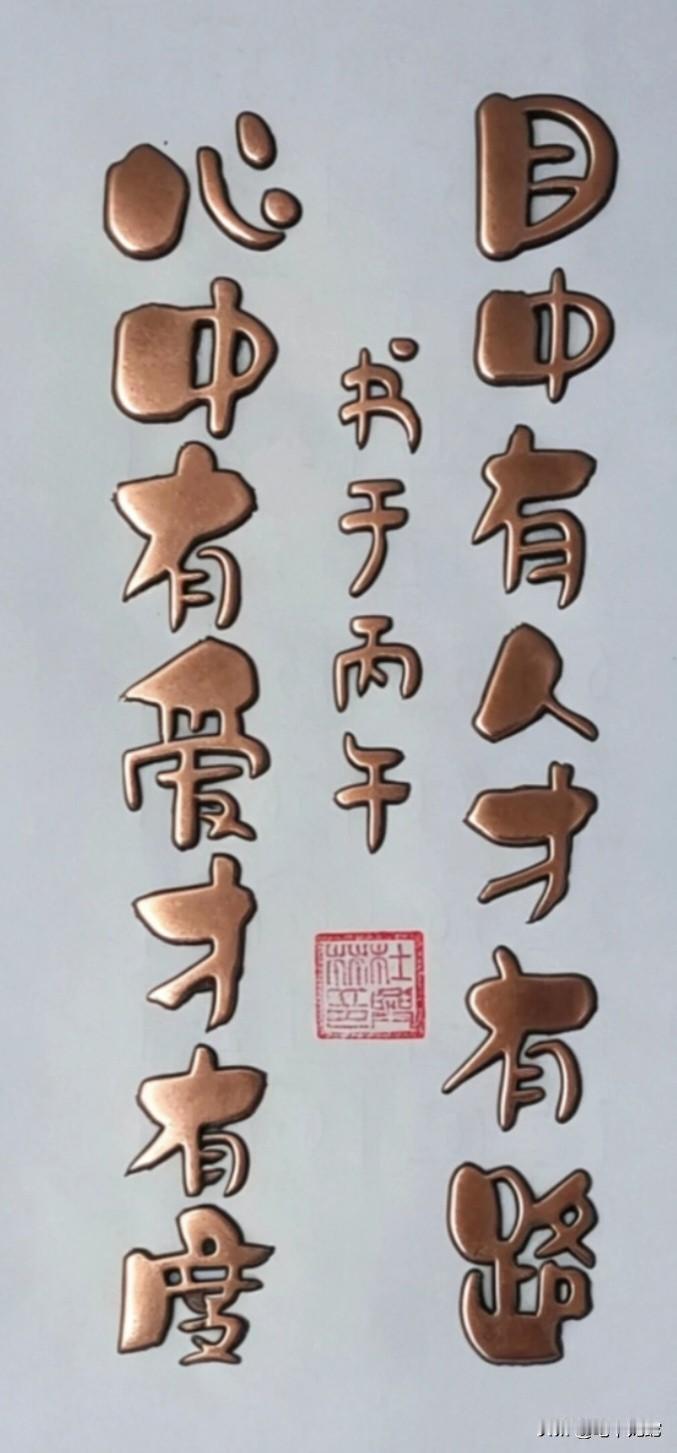 目中有人才有路
心中有爱才有度
书于丙午